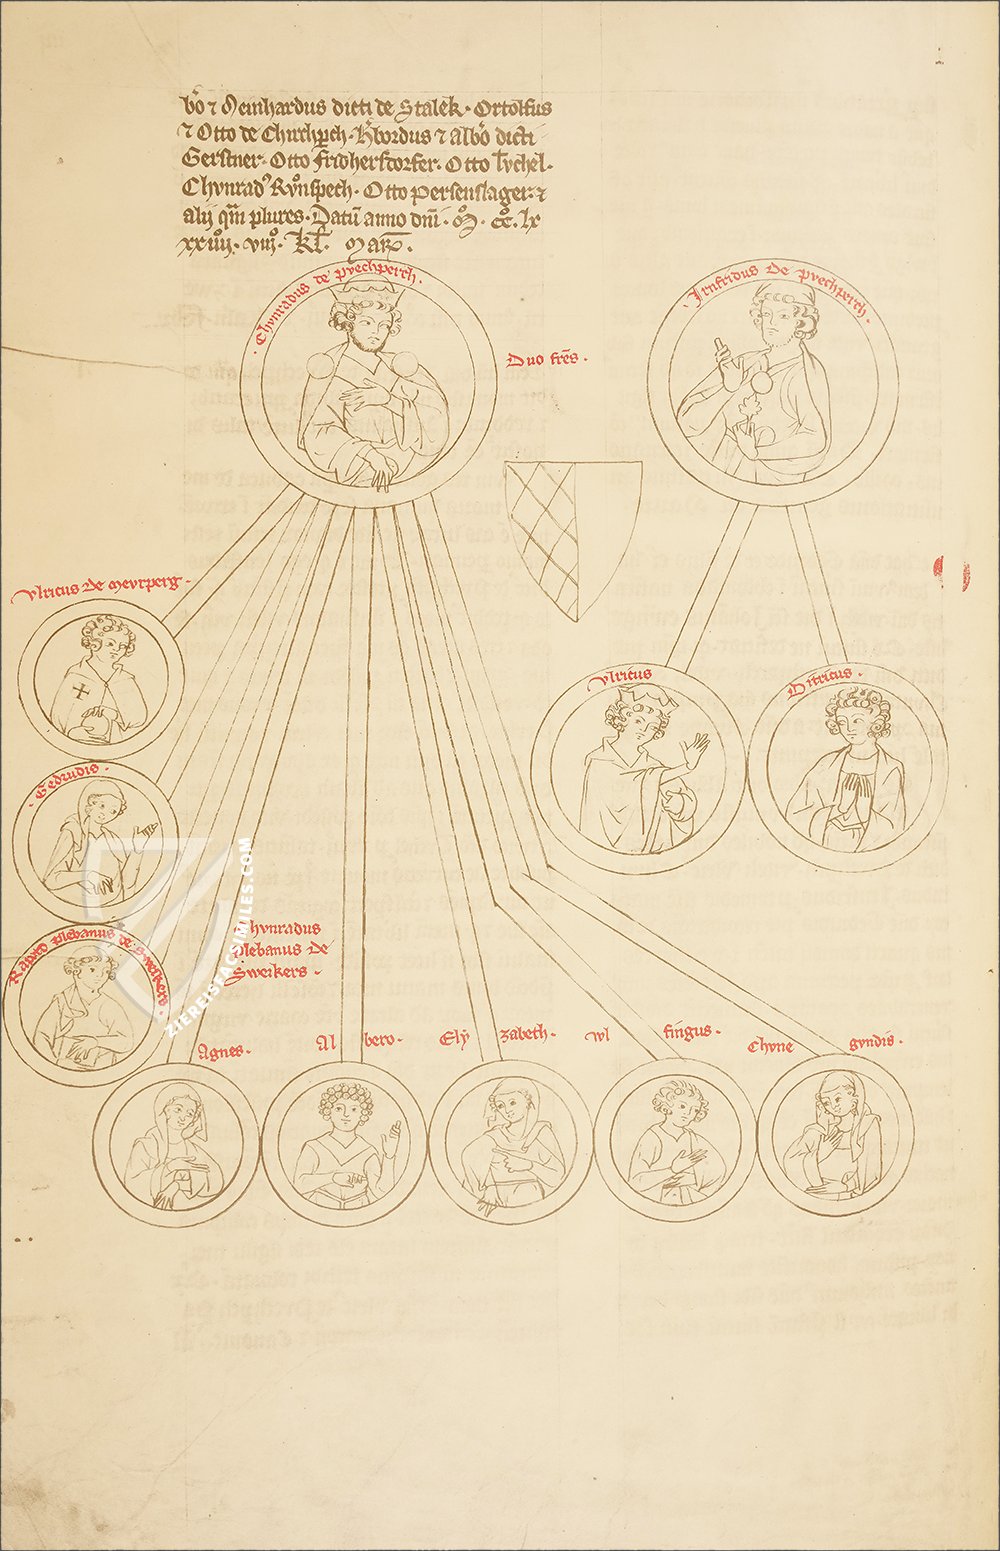 b̊o ⁊ Meinhardus dicti de Stalek · Ortolfus
⁊ Otto de Chirchperch · H̓bordus ⁊ Alb̊o dicti
Gerstner · Otto Fridherstorfer · Otto
Chvnrad⁹ · Otto Persenslager · ⁊
alij qm̄ plures · Datū anno dnī · M̊ · cc̊ · lx
xxiiij · viij̊ · kl̄ · Mar
Chvnradus de Pvechperch ·
Duo fr̄es ·
Irnfridus De Pvechperch ·
Vlricus de Mevrperg ·
Vlricus
Ditricus ·
Gedrudis ·
Rapoto plebanus de Sweikers
Chvnradus
plebanus de
Sweikers ·
Agnes ·
Al bero ·
Ely zabeth ·
Wl fingus ·
Chvne gvndis ·
ZIEREISFACSIMILES.COM